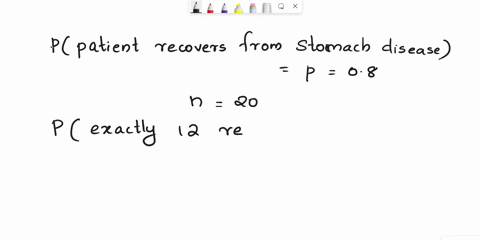 P( patient recovers from stomach disease)
= p = 0.8
n = 20
P( exactly 12 re